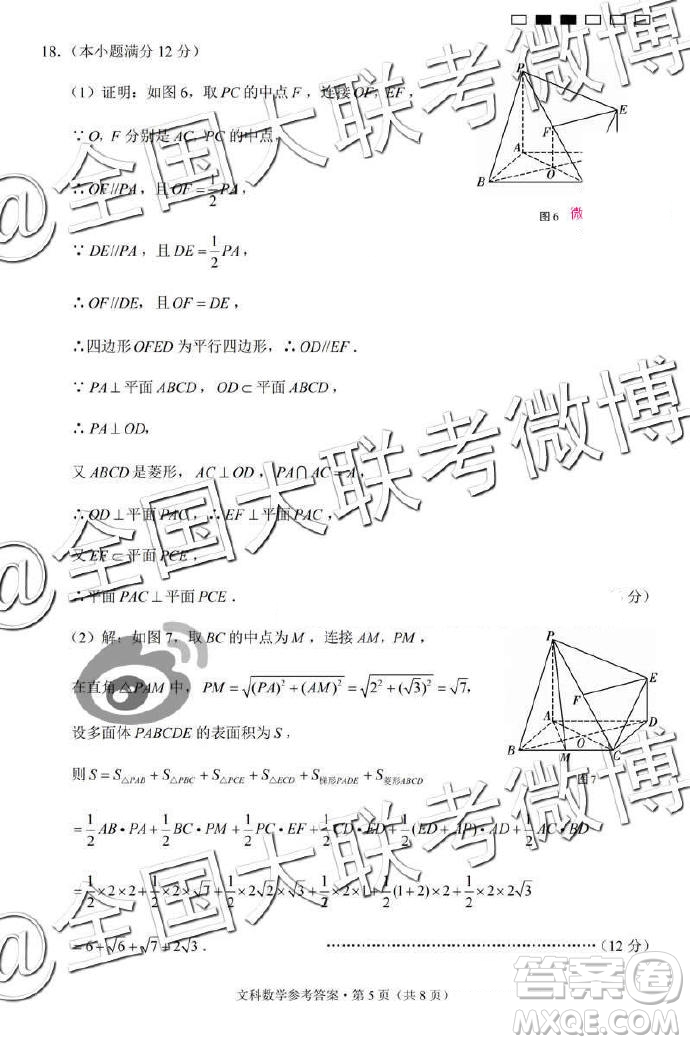 18.（本小题满分 12 分）
（1）证明：如图 6，取 PC 的中点 F，连接 OF，EF，
∵ O，F 分别是 AC，PC 的中点，
∴ OF//PA，且 OF = 1/2 PA，
∵ DE//PA，且 DE = 1/2 PA，
∴ OF//DE，且 OF = DE，
∴四边形 OFED 为平行四边形，∴ OD//EF．
∵ PA⊥平面 ABCD，OD⊂平面 ABCD，
∴ PA⊥OD，
又 ABCD 是菱形，AC⊥OD，PA∩AC = A，
∴ OD⊥平面 PAC，∴ EF⊥平面 PAC，
又 EF⊂平面 PCE，
∴平面 PAC⊥平面 PCE．
分）
P
E
F
A
O
B
图 6
微
（2）解：如图 7，取 BC 的中点为 M，连接 AM，PM，
在直角△PAM 中，PM = √((PA)² + (AM)²) = √(2² + (√3)²) = √7，
设多面体 PABCDE 的表面积为 S，
则 S = S△PAB + S△PBC + S△PCE + S△ECD + S梯形PADE + S菱形ABCD
= 1/2 AB·PA + 1/2 BC·PM + 1/2 PC·EF + 1/2 CD·ED + 1/2 (ED + AP)·AD + 1/2 AC·BD
= 1/2×2×2 + 1/2×2×√7 + 1/2×2√2×√3 + 1/2×2×1 + 1/2(1+2)×2 + 1/2×2×2√3
= 6 + √6 + √7 + 2√3．……（12 分）
P
E
F
A
D
O
B
M
C
图 7
文科数学参考答案·第 5 页（共 8 页）
@全国大联考微博
@全国大联考微博
@全国大联考微博
答案卷
MXQE.COM